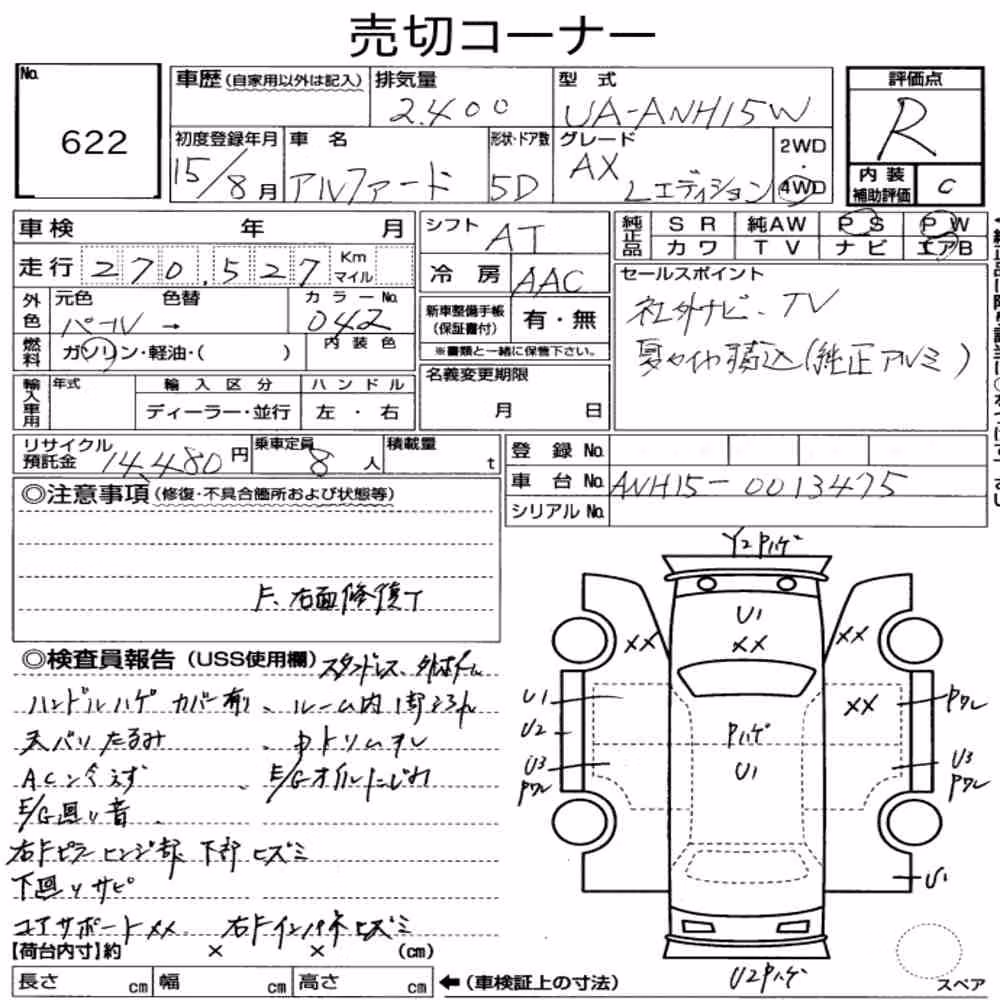 売切コーナー
No.
622
車歴(自家用以外は記入)
排気量
2.400
型 式
UA-ANH15W
評価点
R
初度登録年月
15/8月
車 名
アルファード
形状・ドア数
5D
グレード
AX
Lエディション
2WD
・
4WD
内 装
補助評価
C
車検 年 月
シフト
AT
純正品
SR 純AW PS PW
カワ TV ナビ エアB
走行 270,527 Km
マイル
冷 房
AAC
セールスポイント
社外ナビ、TV
夏タイヤ積込(純正アルミ)
外色
元色 色替
パール →
カラーNo.
042
新車整備手帳
(保証書付)
有・無
※書類と一緒に保管下さい。
燃料
ガソリン・軽油・( )
内 装 色
名義変更期限
月 日
輸入車用
年式
輸 入 区 分
ハ ン ド ル
ディーラー・並行
左 ・ 右
リサイクル
預託金 14,480円
乗車定員
8人
積載量
t
登 録 No.
車 台 No. ANH15-0013475
シリアル No.
◎注意事項(修復・不具合箇所および状態等)
F、右面修復了
◎検査員報告(USS使用欄)
ハンドルハゲ カバー有、ルーム内
天バリたるみ
、内トリムキレ
ACン冷えず
、E/Gオイルにじみ
E/G回り音
右Fピラーヒンジ部、下部ヒズミ
下回りサビ
コアサポートXX、右Fインパネヒズミ
【荷台内寸】約 × × (cm)
長さ cm 幅 cm 高さ cm ←(車検証上の寸法)
Y2Pハゲ
U1
XX XX XX
U1
U2
U3
Pワレ
XX
Pハゲ
U1
Pワレ
U3
Pワレ
U1
U2Pハゲ
スペア